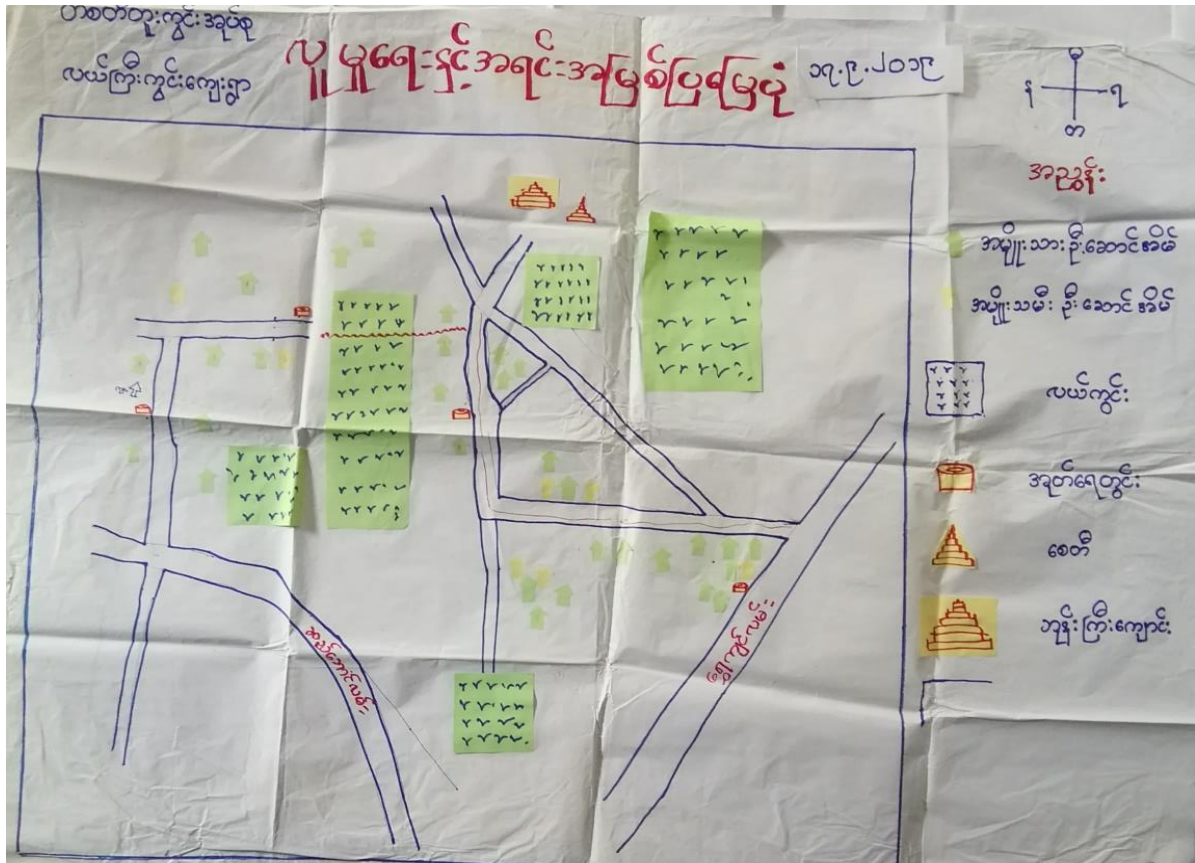 ဟစတ်တူးကွင်းအုပ်စု
လယ်ကြီးကွင်းကျေးရွာ
လူမှုရေးနှင့်အရင်းအမြစ်ပြမြေပုံ
၁၇.၉.၂၀၁၉
မြ
န
ရ
တ
အညွှန်း
အမျိုးသားဦးဆောင်အိမ်
အမျိုးသမီးဦးဆောင်အိမ်
လယ်ကွင်း
အုတ်ရေတွင်း
စေတီ
ဘုန်းကြီးကျောင်း
ရွှေကျင်လမ်း